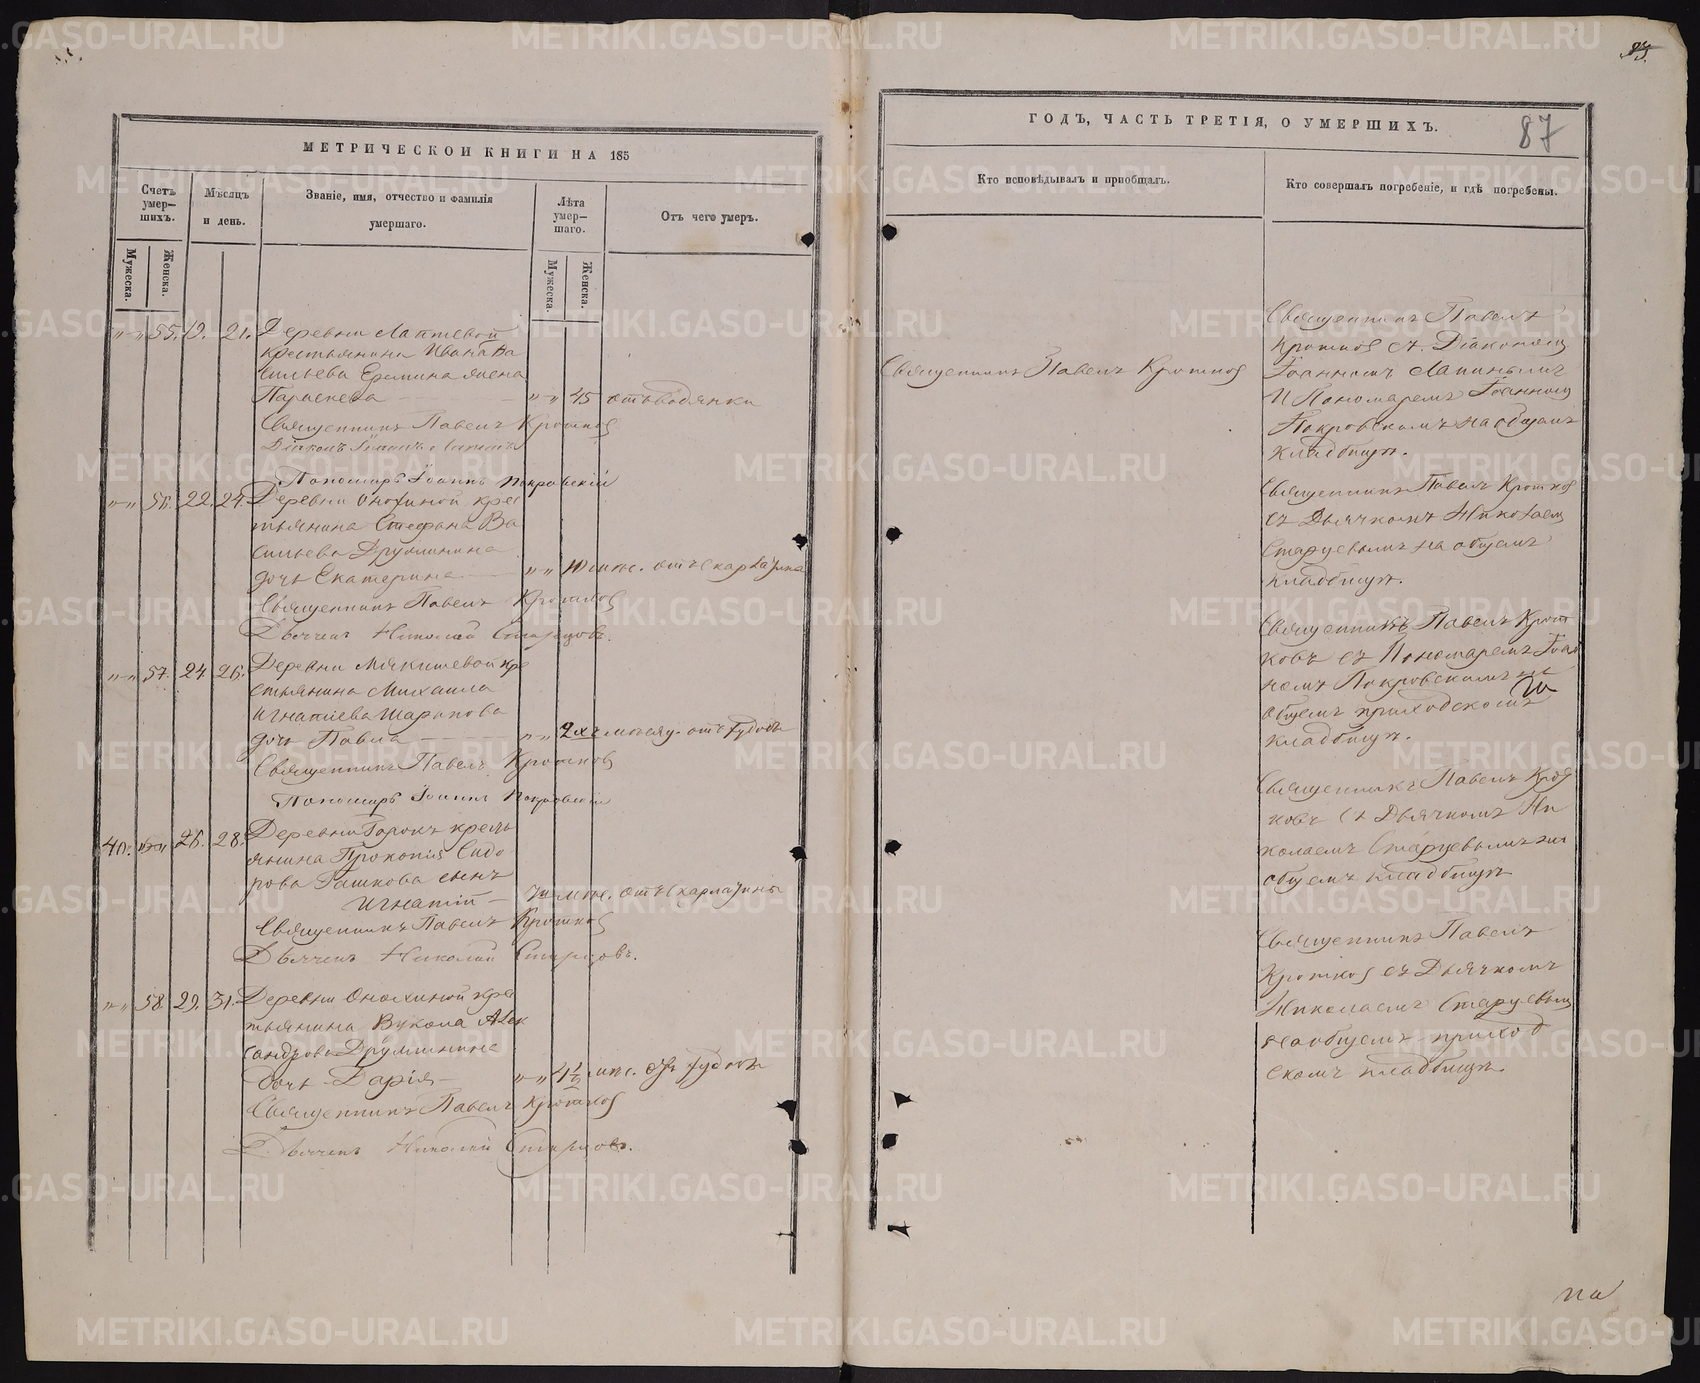 МЕТРИЧЕСКОЙ КНИГИ НА 185
Счетъ умер-шихъ.
Мужеска.
Женска.
Мѣсяцъ и день.
Званіе, имя, отчество и фамилія умершаго.
Лѣта умер-шаго.
Мужеска.
Женска.
Отъ чего умеръ.
55. 19. 21. Деревни Лаптевой
крестьянина Ивана Ва
сильева Еремина жена
Параскева 45 отъ водянки
Священникъ Павелъ Кротковъ
Діаконъ Іоаннъ Лапинъ
Пономарь Іоаннъ Покровскій
56. 22. 24. Деревни Онохиной крес
тьянина Стефана Ва
сильева Дружинина
дочь Екатерина 10 мѣс. отъ скарлатины
Священникъ Павелъ Кротковъ
Дьячекъ Николай Старцовъ.
57. 24 26. Деревни Мякишевой кре
стьянина Михаила
Игнатіева Шарапова
дочь Павла 2хъ мѣсяц. отъ
Священникъ Павелъ Кротковъ
Пономарь Іоаннъ Покровскій
40. 26. 28. Деревни Горокъ крест
янина Прокопія Сидо
рова Гашкова сынъ
Игнатій мѣс. отъ скарлатины
Священникъ Павелъ Кротковъ
Дьячекъ Николай Старцовъ.
58. 29. 31. Деревни Онохиной крес
тьянина Вукола Алек
сандрова Дружинина
дочь Дарія 1½ мѣс.
Священникъ Павелъ Кротковъ
Дьячекъ Николай Старцовъ.
ГОДЪ, ЧАСТЬ ТРЕТІЯ, О УМЕРШИХЪ.
87
Кто исповѣдывалъ и пріобщалъ.
Кто совершалъ погребеніе, и гдѣ погребены.
Священникъ Павелъ Кротковъ
Священникъ Павелъ
Кротковъ съ Діакономъ
Іоанномъ Лапинымъ
и Пономаремъ Іоанномъ
Покровскимъ на общемъ
кладбищѣ.
Священникъ Павелъ Кротков
съ Дьячкомъ Николаем
Старцевымъ на общемъ
кладбищѣ.
Священникъ Павелъ Крот
ковъ съ Пономаремъ Іоан
номъ Покровскимъ на
общемъ приходскомъ
кладбищѣ.
Священникъ Павелъ Крот
ковъ съ Дьячкомъ Ни
колаемъ Старцевымъ на
общемъ кладбищѣ
Священникъ Павелъ
Кротков съ Дьячкомъ
Николаемъ Старцевым
на общемъ приход
скомъ кладбищѣ.
на
METRIKI.GASO-URAL.RU